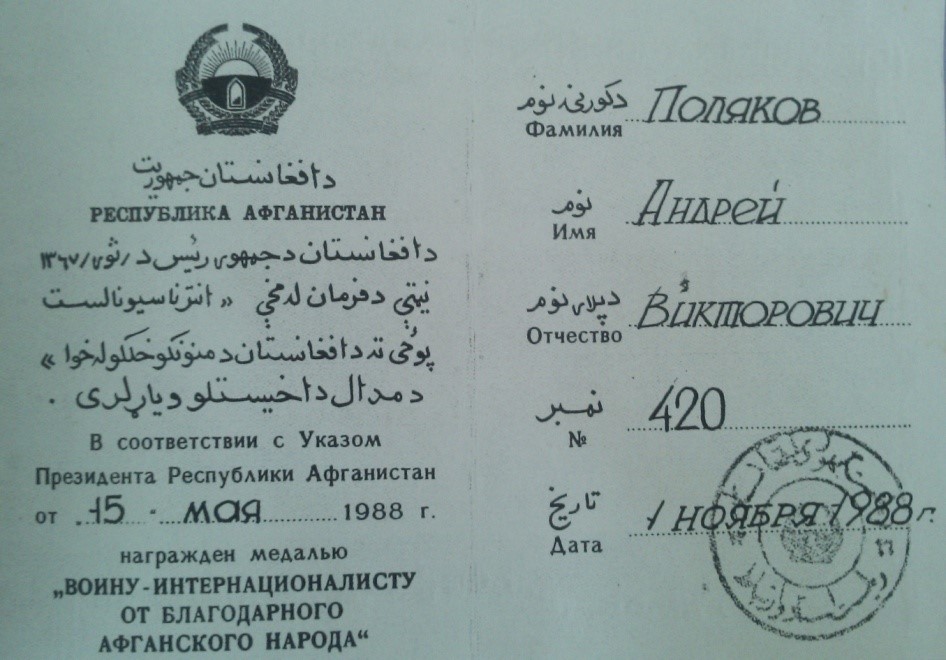 د افغانستان جمهوریت
РЕСПУБЛИКА АФГАНИСТАН
د افغانستان د جمهوری رئیس د /ثور/ ۱۳۶۷
نیټې د فرمان له مخې « انترناسیونالست
پوځی ته د افغانستان د منونکو خلکو له خوا »
د مدال د اخیستلو ویاړ لری .
В соответствии с Указом
Президента Республики Афганистан
от 15 мая 1988 г.
награжден медалью
„ВОИНУ-ИНТЕРНАЦИОНАЛИСТУ
ОТ БЛАГОДАРНОГО
АФГАНСКОГО НАРОДА“
د کورنۍ نوم Поляков
Фамилия
نوم Андрей
Имя
د پلار نوم Викторович
Отчество
نمبر 420
№
تاریخ 1 ноября 1988 г.
Дата